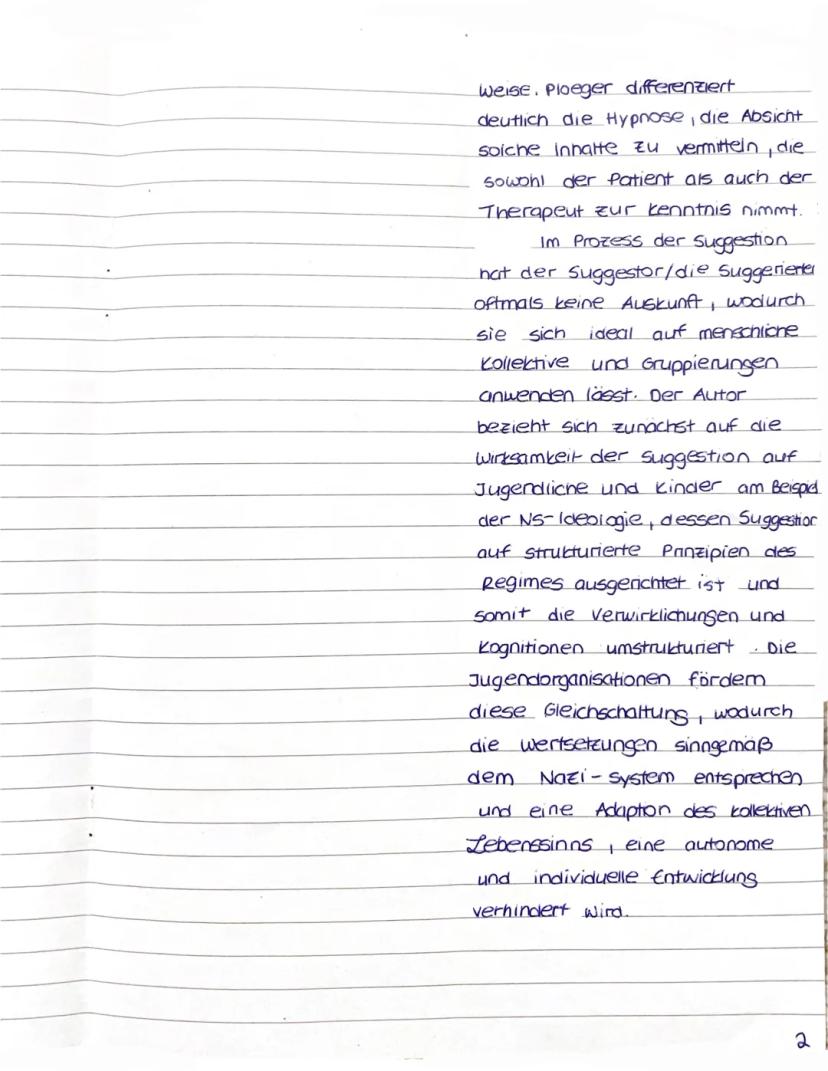 Weise. Ploeger differenziert
deutlich die Hypnose, die Absicht
solche Inhalte zu vermitteln, die
sowohl der Patient als auch der
Therapeut zur Kenntnis nimmt.
Im Prozess der Suggestion
hat der Suggestor/die Suggerierte
oftmals keine Auskunft, wodurch
sie sich ideal auf menschliche
Kollektive und Gruppierungen
anwenden lässt. Der Autor
bezieht sich zunächst auf die
Wirksamkeit der Suggestion auf
Jugendliche und Kinder am Beispiel
der NS-Ideologie, dessen Suggestion
auf strukturierte Prinzipien des
Regimes ausgerichtet ist und
somit die Verwirklichungen und
Kognitionen umstrukturiert. Die
Jugendorganisationen fördern
diese Gleichschaltung, wodurch
die Wertsetzungen sinngemäß
dem Nazi-System entsprechen
und eine Adaption des kollektiven
Lebenssinns, eine autonome
und individuelle Entwicklung
verhindert wird.
2